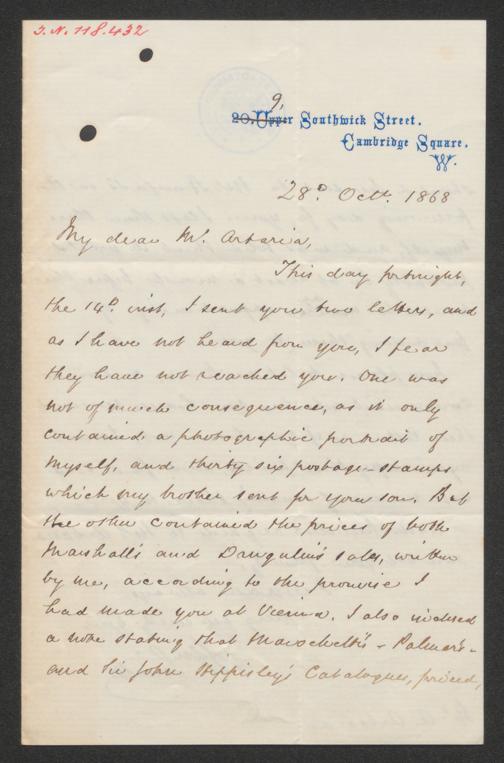 I.N. 118.432
9,
20, Upper Southwick Street.
Cambridge Square.
W.
28th Octr. 1868
My dear Mr. Artaria,
This day fortnight,
the 14th inst, I sent you two letters, and
as I have not heard from you, I fear
they have not reached you. One was
not of much consequence, as it only
contained a photographic portrait of
myself, and thirty six postage-stamps
which my brother sent for your son. But
the other contained the prices of both
Marshall's and Drugulin's sales, written
by me, according to the promise I
had made you at Vienna. I also inclosed
a note stating that Marochetti's - Palmer's -
and Sir John Hippisley's Catalogues, priced,